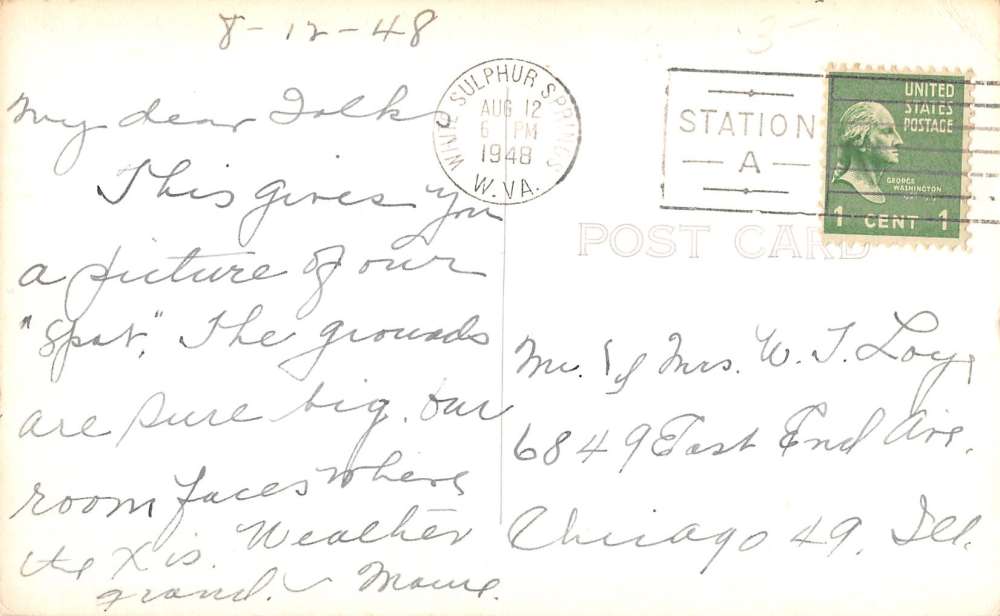 8-12-48
My dear Folk
This gives you
a picture of our
"spot". The grounds
are sure big. Our
room faces where
the X is. Weather
grand. -
WHITE SULPHUR SPRINGS
AUG 12
6 PM
1948
W. VA.
STATION
A
UNITED
STATES
POSTAGE
GEORGE
WASHINGTON
1 CENT 1
POST CARD
Mr. & Mrs. W. T. Loy,
6849 East End Ave.
Chicago 49, Ill.